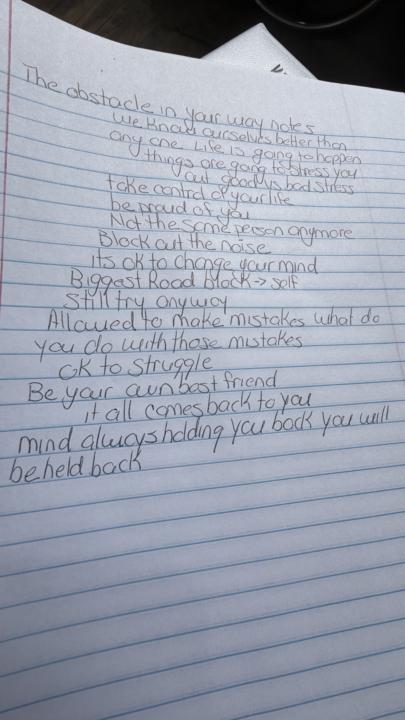 The obstacle in your way notes
we know ourselves better than
any one. Life is going to happen
things are going to stress you
out good vs bad stress
take control of your life
be proud of you
Not the same person anymore
Block out the noise
its ok to change your mind
Biggest Road block -> self
Still try anyway
Allowed to make mistakes what do
you do with those mistakes
ok to struggle
Be your own best friend
it all comes back to you
mind always holding you back you will
be held back